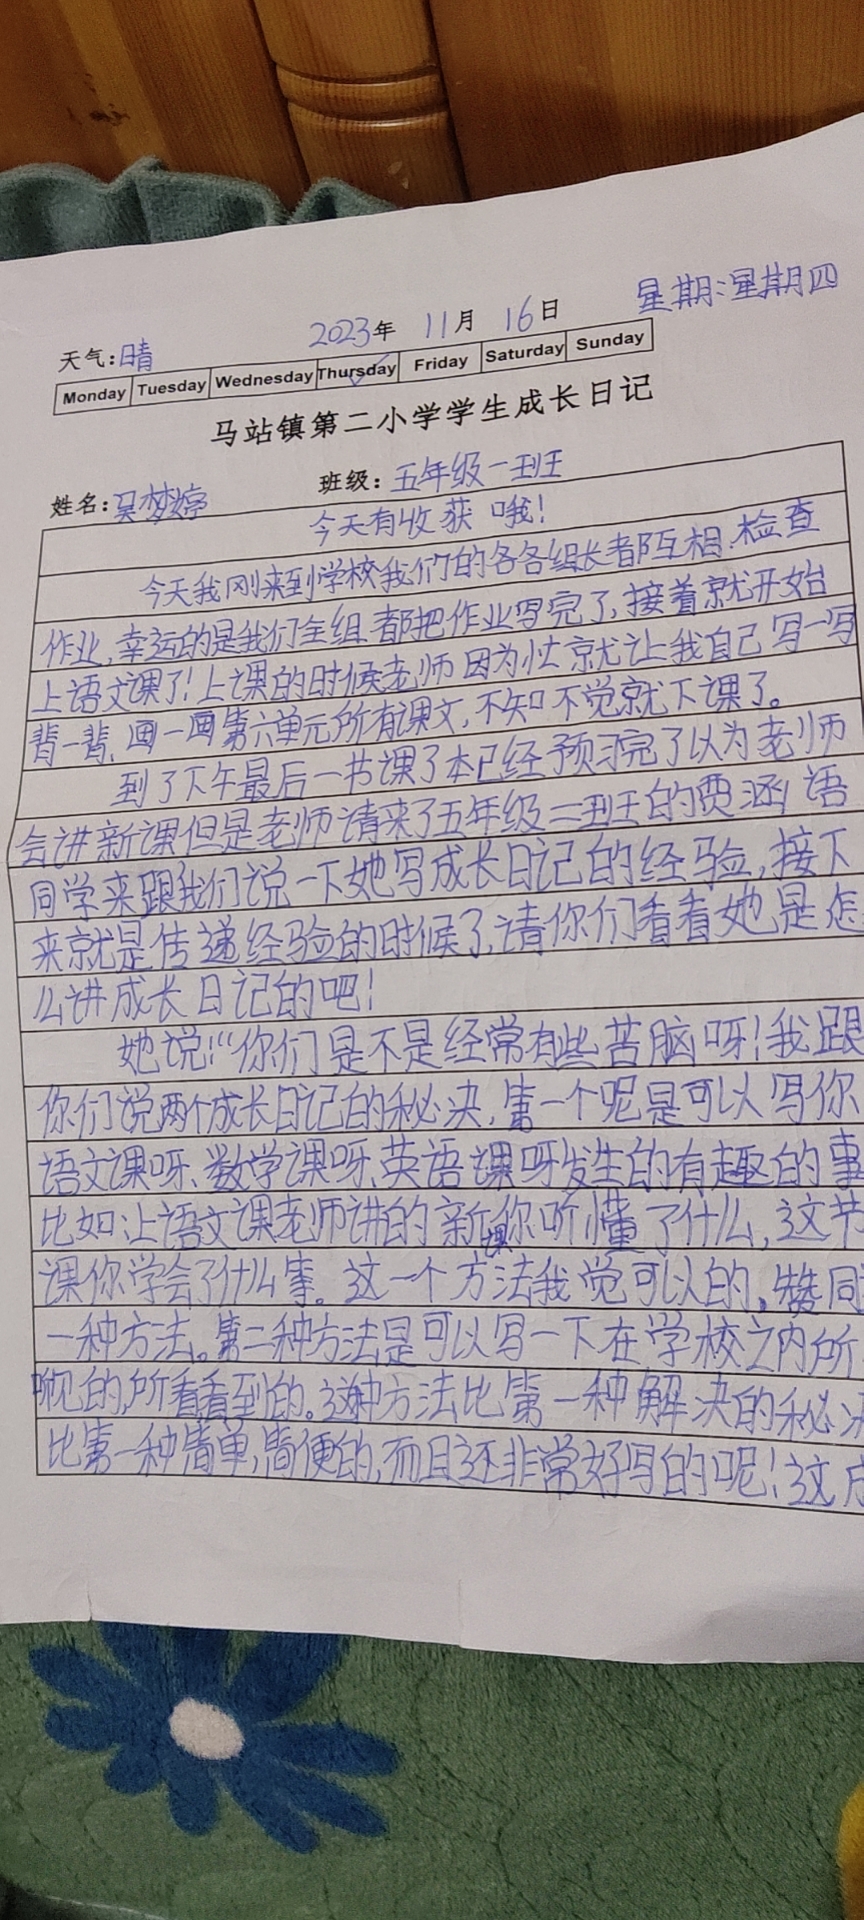 星期:星期四
天气:晴 2023年 11月 16日
Monday Tuesday Wednesday Thursday Friday Saturday Sunday
马站镇第二小学学生成长日记
姓名:吴梦婷 班级:五年级一班
今天有收获哦!
今天我刚来到学校我们的各各组长都互相检查
作业,幸运的是我们全组都把作业写完了,接着就开始
上语文课了!上课的时候老师因为忙就让我自己写一写
背一背、画一画第六单元所有课文,不知不觉就下课了。
到了下午最后一节课了本已经预习完了以为老师
会讲新课但是老师请来了五年级二班的贾涵语
同学来跟我们说一下她写成长日记的经验,接下
来就是传递经验的时候了,请你们看看她是怎
么讲成长日记的吧!
她说!“你们是不是经常有些苦脑呀!我跟
你们说两个成长日记的秘决,第一个呢是可以写你
语文课呀、数学课呀、英语课呀发生的有趣的事
比如:上语文课老师讲的新课你听懂了什么,这节
课你学会了什么事。这一个方法我觉可以的。赞同
一种方法。第二种方法是可以写一下在学校之内所
见的,所看看到的。这种方法比第一种解决的秘决
比第一种简单,简便的,而且还非常好写的呢!这